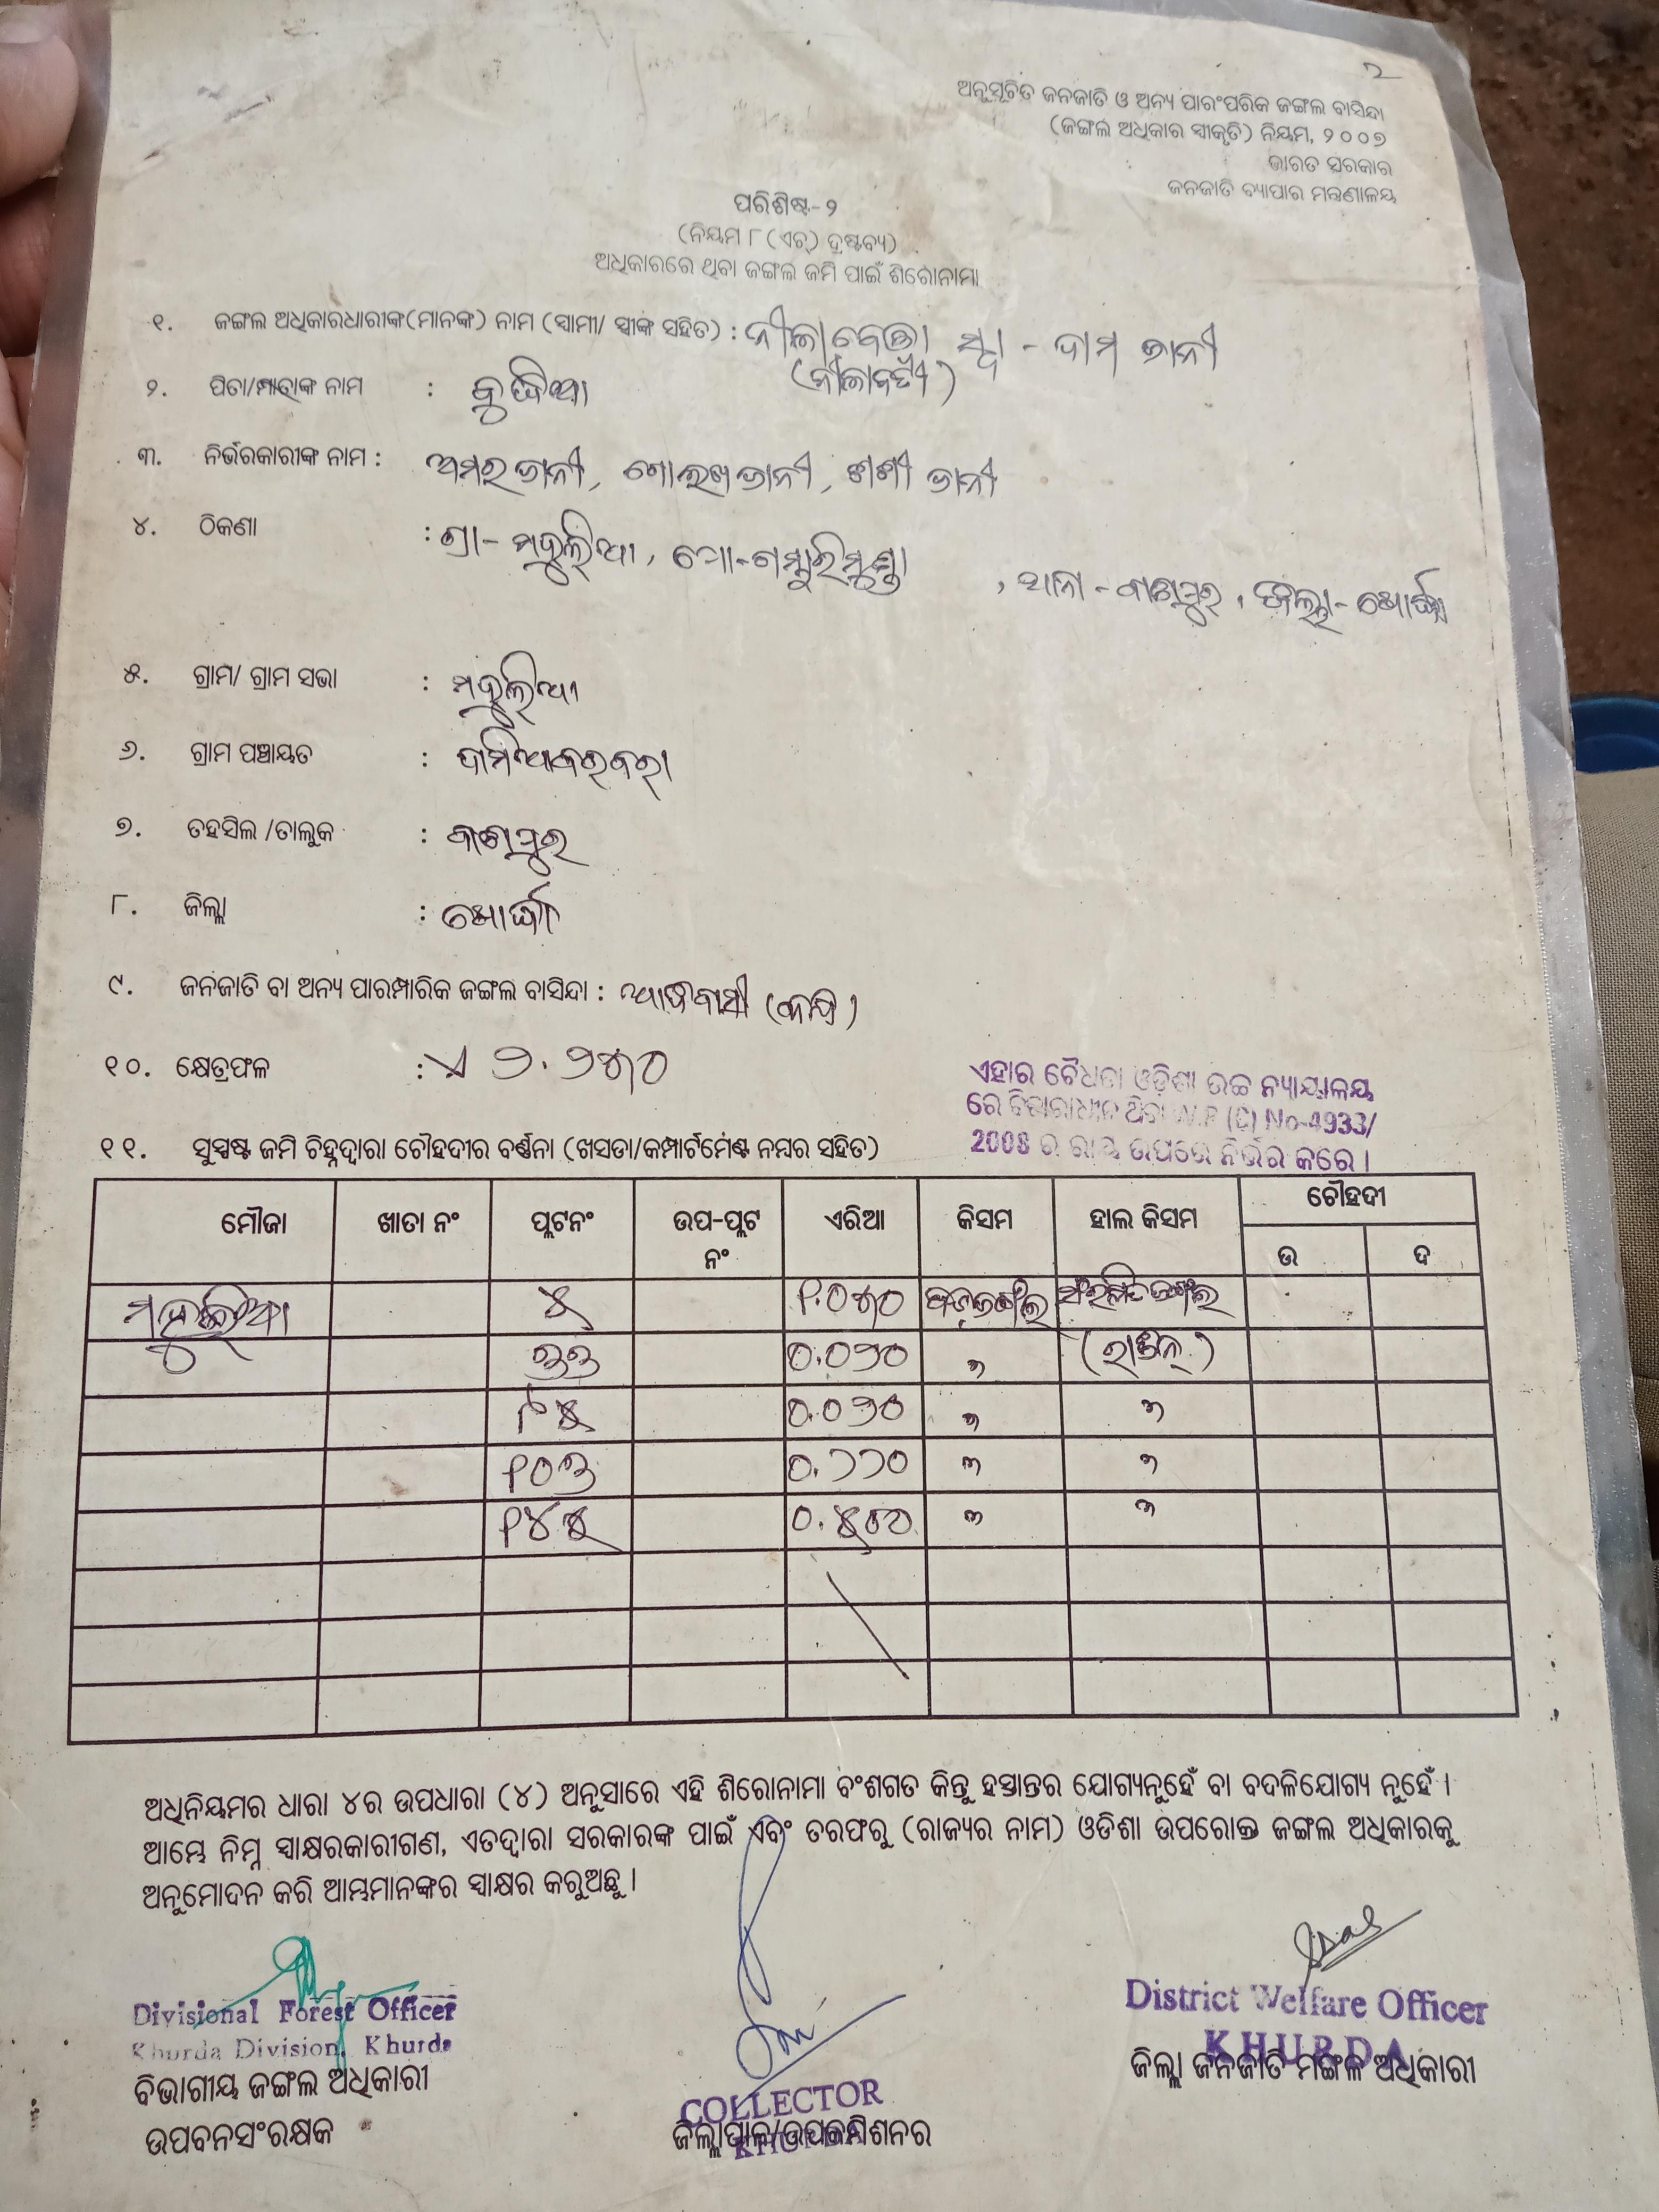 ୨
ଅନୁସୂଚିତ ଜନଜାତି ଓ ଅନ୍ୟ ପାରଂପରିକ ଜଙ୍ଗଲ ବାସିନ୍ଦା
(ଜଙ୍ଗଲ ଅଧିକାର ସ୍ୱୀକୃତି) ନିୟମ, ୨୦୦୭
ଭାରତ ସରକାର
ଜନଜାତି ବ୍ୟାପାର ମନ୍ତ୍ରଣାଳୟ
ପରିଶିଷ୍ଟ-୨
(ନିୟମ ୮(ଏଚ୍) ଦ୍ରଷ୍ଟବ୍ୟ)
ଅଧିକାରରେ ଥିବା ଜଙ୍ଗଲ ଜମି ପାଇଁ ଶିରୋନାମା
୧. ଜଙ୍ଗଲ ଅଧିକାରଧାରୀଙ୍କ(ମାନଙ୍କ) ନାମ (ସ୍ୱାମୀ/ ସ୍ତ୍ରୀଙ୍କ ସହିତ) : ସ୍ୱା - ଦାମ ଜାନୀ
୨. ପିତା/ମାତାଙ୍କ ନାମ :
୩. ନିର୍ଭରକାରୀଙ୍କ ନାମ : ଅମର ଜାନୀ, ଗୋଲଖ ଜାନୀ, ଶଶୀ ଜାନୀ
୪. ଠିକଣା : ଗ୍ରା- ମହୁଲିଆ, ପୋ-ଗମ୍ଭାରିମୁଣ୍ଡା, ଥାନା - ବାଣପୁର, ଜିଲ୍ଲା- ଖୋର୍ଦ୍ଧା
୫. ଗ୍ରାମ/ ଗ୍ରାମ ସଭା : ମହୁଲିଆ
୬. ଗ୍ରାମ ପଞ୍ଚାୟତ : ଦାମିଆବରବରା
୭. ତହସିଲ /ତାଲୁକ : ବାଣପୁର
୮. ଜିଲ୍ଲା : ଖୋର୍ଦ୍ଧା
୯. ଜନଜାତି ବା ଅନ୍ୟ ପାରମ୍ପାରିକ ଜଙ୍ଗଲ ବାସିନ୍ଦା : ଆଦିବାସୀ (କନ୍ଧ)
୧୦. କ୍ଷେତ୍ରଫଳ : ଏ ୨.୨୫୦
ଏହାର ବୈଧତା ଓଡ଼ିଶା ଉଚ୍ଚ ନ୍ୟାୟାଳୟ
ରେ ବିଚାରାଧୀନ ଥିବା W.P (C) No-4933/
2008 ର ରାୟ ଉପରେ ନିର୍ଭର କରେ ।
୧୧. ସୁସ୍ପଷ୍ଟ ଜମି ଚିହ୍ନଦ୍ୱାରା ଚୌହଦୀର ବର୍ଣ୍ଣନା (ଖସଡା/କମ୍ପାର୍ଟମେଣ୍ଟ ନମ୍ବର ସହିତ)
ମୌଜା ଖାତା ନଂ ପ୍ଲଟନଂ ଉପ-ପ୍ଲଟ ନଂ ଏରିଆ କିସମ ହାଲ କିସମ ଚୌହଦୀ
ଉ ଦ
ମହୁଲିଆ ୪ ୧.୦୫୦
୩୩ ୦.୦୨୦ ”
୦.୦୨୦ ” ”
୧୦୩ ୦.୨୨୦ ” ”
”  ”
ଅଧିନିୟମର ଧାରା ୪ର ଉପଧାରା (୪) ଅନୁସାରେ ଏହି ଶିରୋନାମା ବଂଶଗତ କିନ୍ତୁ ହସ୍ତାନ୍ତର ଯୋଗ୍ୟନୁହେଁ ବା ବଦଳିଯୋଗ୍ୟ ନୁହେଁ ।
ଆମ୍ଭେ ନିମ୍ନ ସ୍ୱାକ୍ଷରକାରୀଗଣ, ଏତଦ୍ୱାରା ସରକାରଙ୍କ ପାଇଁ ଏବଂ ତରଫରୁ (ରାଜ୍ୟର ନାମ) ଓଡିଶା ଉପରୋକ୍ତ ଜଙ୍ଗଲ ଅଧିକାରକୁ
ଅନୁମୋଦନ କରି ଆମ୍ଭମାନଙ୍କର ସ୍ୱାକ୍ଷର କରୁଅଛୁ ।
Divisional Forest Officer
Khurda Division, Khurda
ବିଭାଗୀୟ ଜଙ୍ଗଲ ଅଧିକାରୀ
ଉପବନସଂରକ୍ଷକ
COLLECTOR
KHURDA
ଜିଲ୍ଲାପାଳ/ଉପକମିଶନର
District Welfare Officer
KHURDA
ଜିଲ୍ଲା ଜନଜାତି ମଙ୍ଗଳ ଅଧିକାରୀ